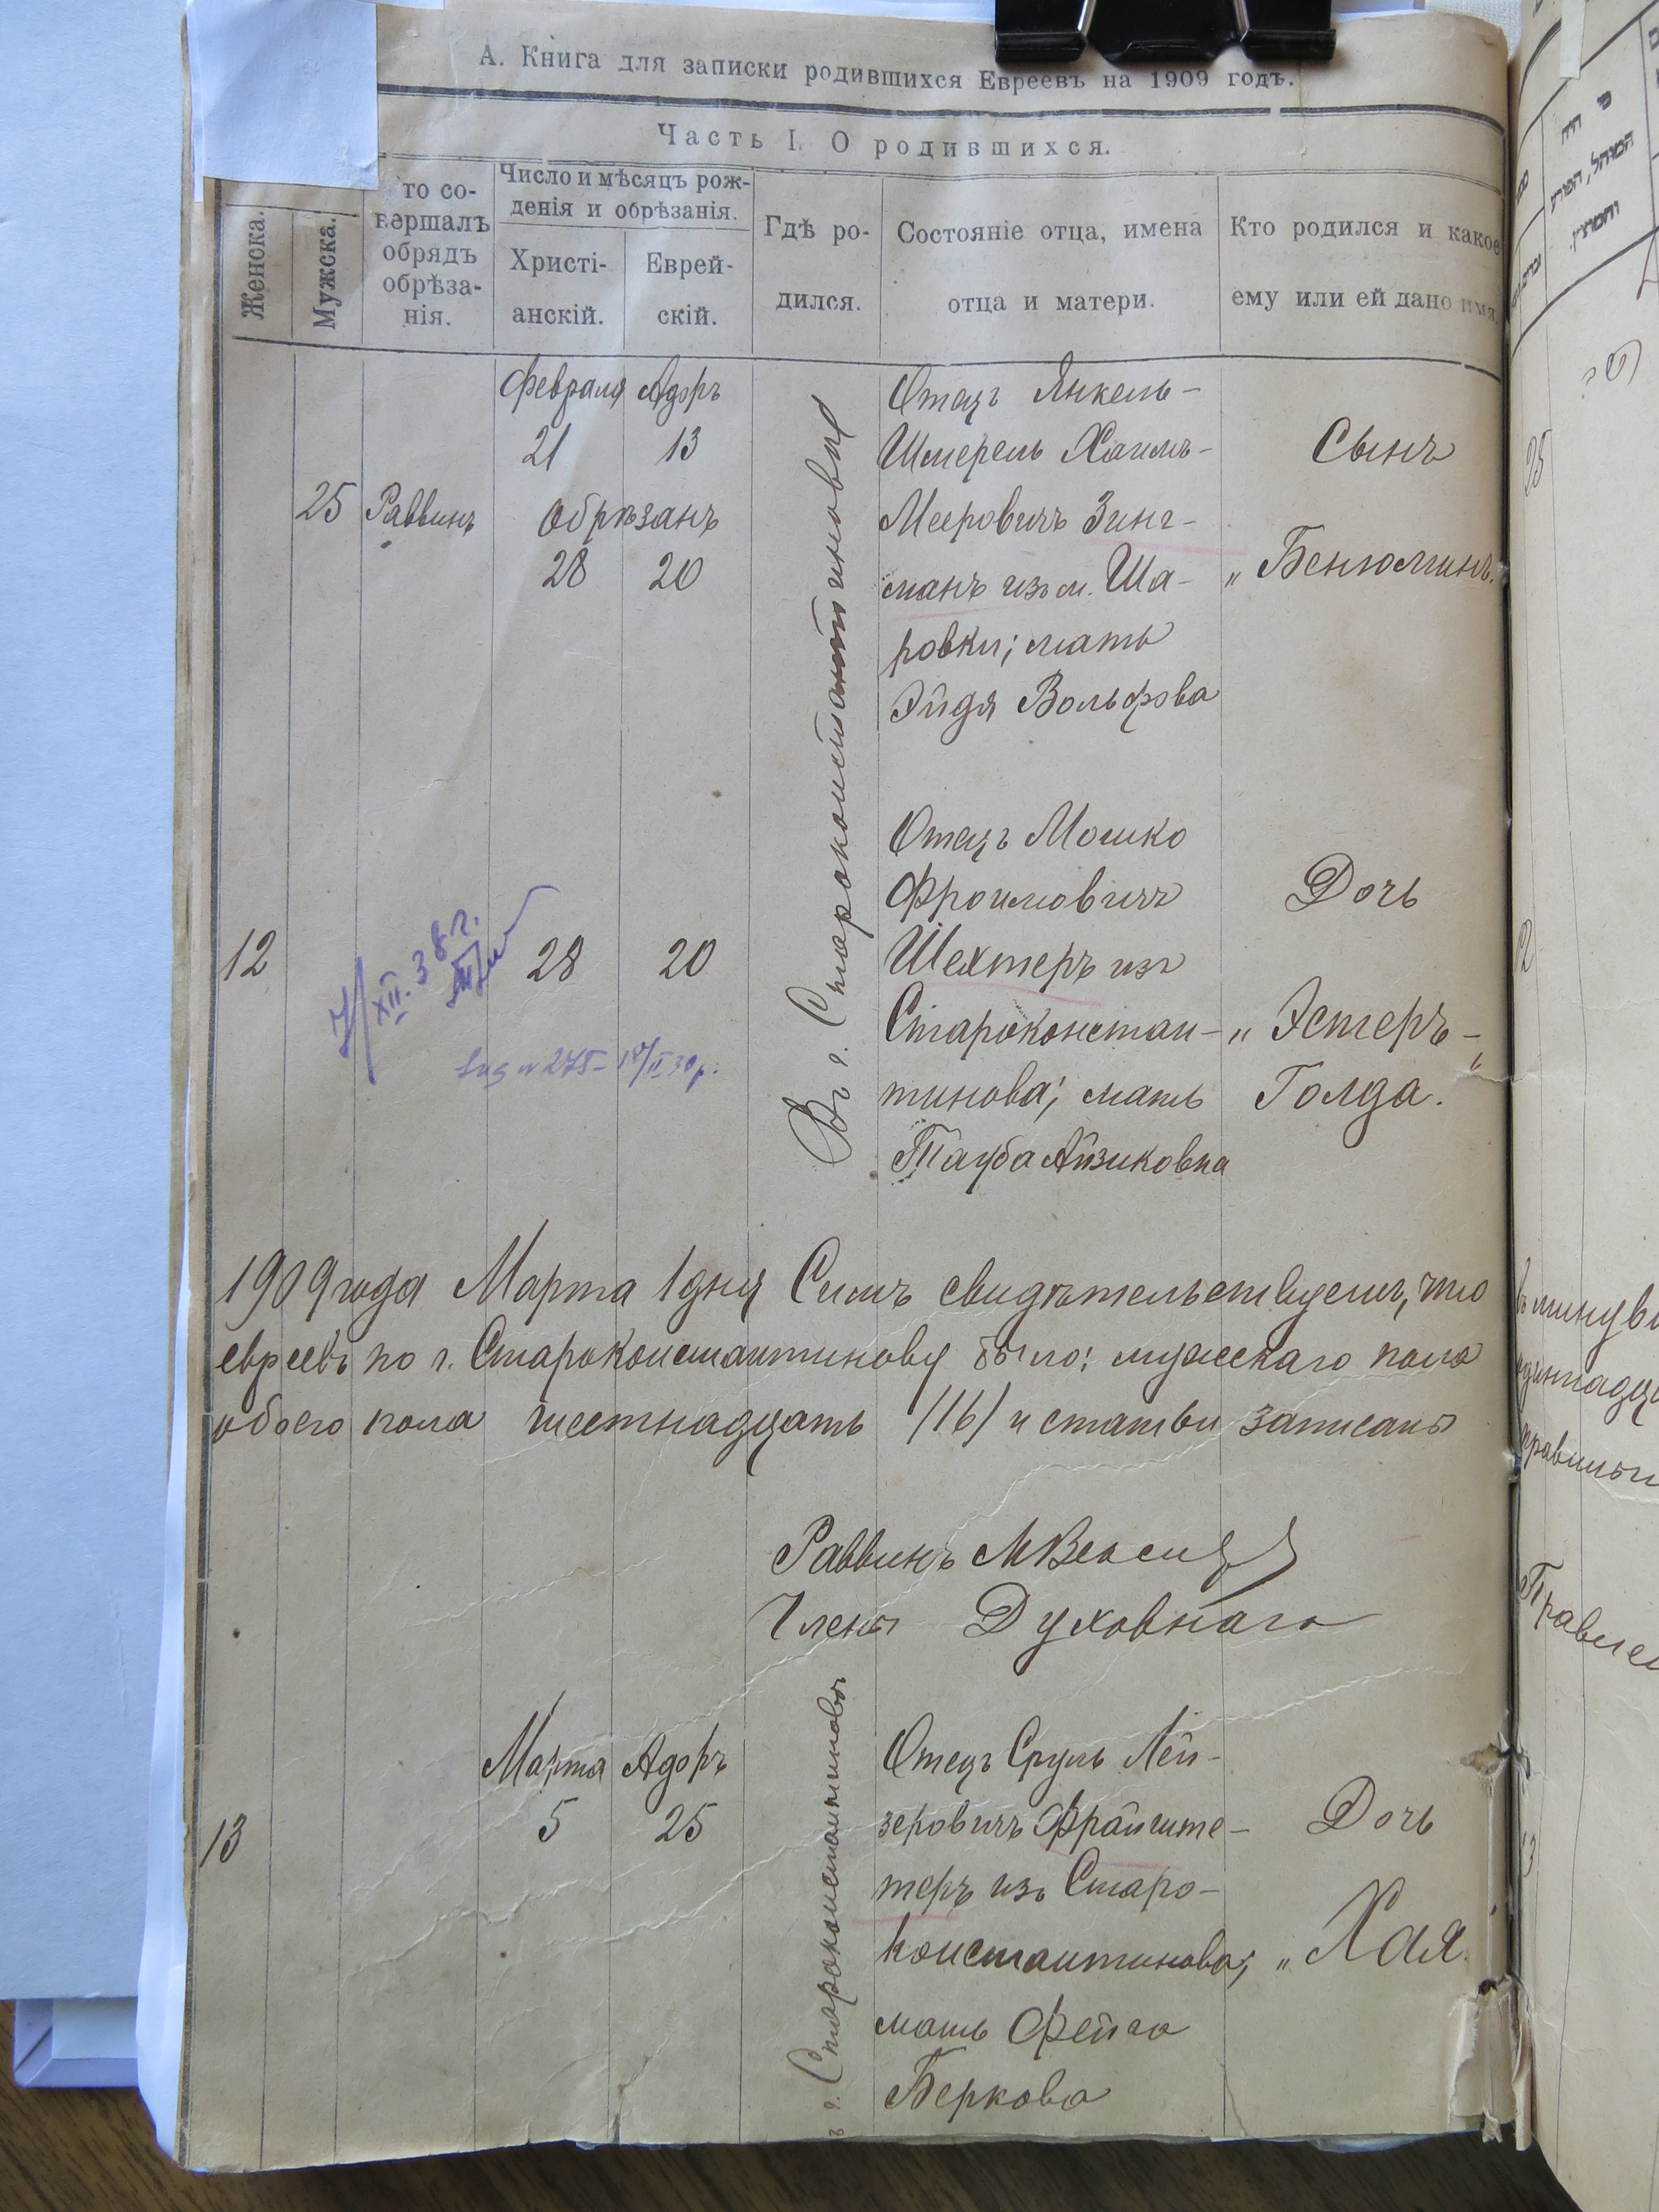 А. Книга для записки родившихся Евреевъ на 1909 годъ.
Часть I. О родившихся.
Женска.
Мужска.
то со-
вершалъ
обрядъ
обрѣза-
нія.
Число и мѣсяцъ рож-
денія и обрѣзанія.
Христі-
анскій.
Еврей-
скій.
Гдѣ ро-
дился.
Состояніе отца, имена
отца и матери.
Кто родился и какое
ему или ей дано имя.
25 Раввинъ
Февраля Адоръ
21 13
Обрѣзанъ
28 20
Въ г. Староконстантиновѣ
Отецъ Янкель-
Шмерель Хаимъ-
Мееровичъ Зинг-
манъ изъ м. Ша-
ровки; мать
Эйдя Вольфова
Сынъ
„Бенюминъ.
12
28 20
7/XII. 38 г.
Отецъ Мошко
Фроимовичъ
Шехтеръ изъ
Староконстан-
тинова; мать
Тауба Айзиковна
Дочь
„Эстеръ-
Голда.“
1909 года Марта 1 дня Симъ свидѣтельствуемъ, что
евреевъ по г. Староконстантинову было: мужескаго пола
обоего пола шестнадцать /16/ и статьи записаны
Раввинъ
Члены Духовнаго
13
Марта Адоръ
5 25
г. Староконстантиновѣ
Отецъ Сруль Лей-
зеровичъ Фрайште-
теръ изъ Старо-
константинова;
мать Фейга
Беркова
Дочь
„Хая
25
12
13